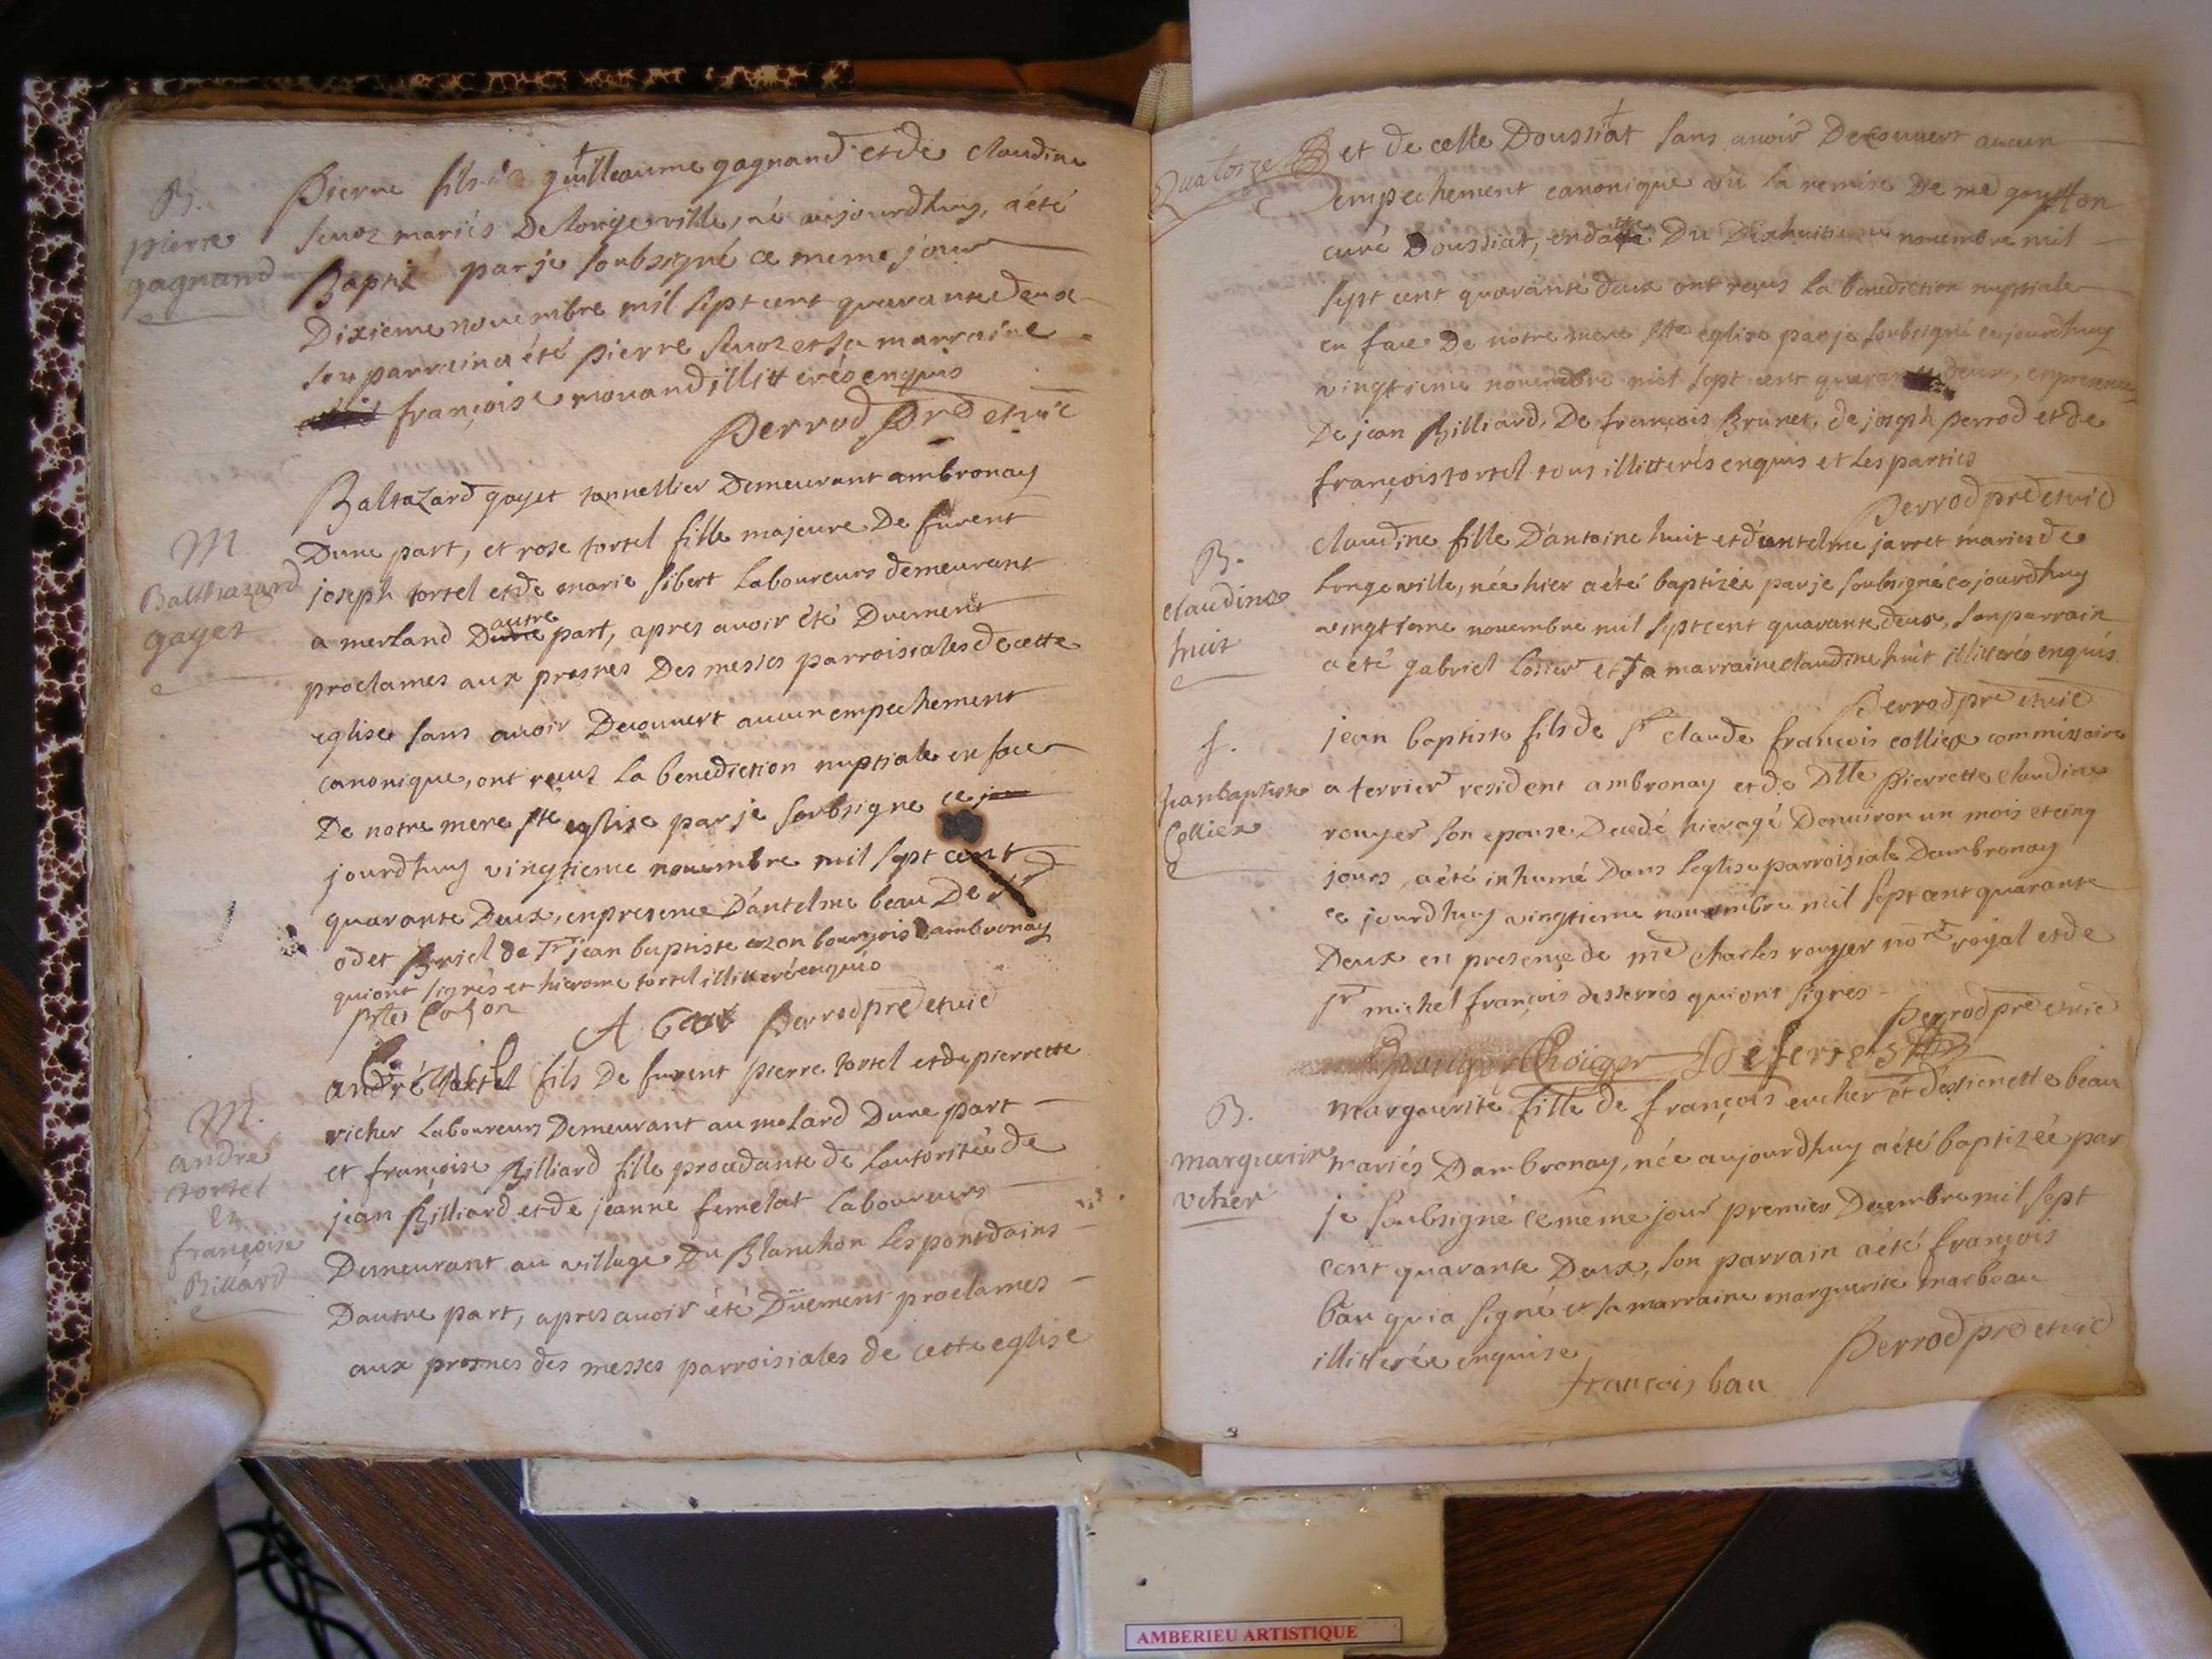 B.
pierre
gagnand
Pierre fils de guilleaume gagnand et de claudine
sevoz mariés de longeville, né aujourdhuy, a été
Baptizé par je soubsigné ce meme jour
Dixieme novembre mil sept cent quarante deux
son parrain a été pierre sevoz et sa marraine
françoise morand illitterés enquis
Perrod pre et vic
M.
Balthazard
gayet
Baltazard gayet tonnellier Demeurant ambronay
Dune part, et rose tortel fille majeure De furent
joseph tortel et de marie sibert Laboureurs demeurant
a merland Dautre part, apres avoir été Duement
proclames aux prosnes Des messes parroisiales de cette
eglise sans avoir Decouvert aucun empechement
canonique, ont reçus La benediction nuptiale en face
De notre mere ste eglise par je soubsigne ce
jourdhuy vingtieme novembre mil sept cent
quarante Deux, en presence D'antelme beau De sr
odet Bruiel de sr jean baptiste cozon bourgois Dambronay
qui ont signés et hierome tortel illitteré enquis
Cozon
A Beau Perrod pre et vic
M.
andre
tortel
et
françoise
Billiard
André tortel fils De furent pierre tortel et de pierrette
richer Laboureurs Demeurant au molard Dune part
et françoise Billiard fille procedante de Lautoritée de
jean Billiard et de jeanne femelat Laboureurs
Demeurant au village Du Blanchon Les pontdains
Dautre part, apres avoir été Düement proclames
aux prosnes des messes parroisiales de cette eglise
Quatorze
et de celle Doussiat sans avoir Decouvert aucun
empechement canonique vû la remise De me goytton
curé Doussiat, en datte Du Dixhuitieme novembre mil
sept cent quarante deux ont reçus La benediction nuptiale
en face De notre mere ste eglise par je soubsigné cejourdhuy
vingtieme novembre mil sept cent quarante deux, en presence
De jean Billiard, De françois Brunet, de joseph perrod et de
françois tortel tous illitterés enquis et Les parties
Perrod pre et vic
B.
claudine
huit
claudine fille D'antoine huit et d'antelme jarret mariés de
Longeville, née hier a été baptizée par je soubsigné cejourdhuy
vingtieme novembre mil sept cent quarante deux, son parrain
a été gabriel Losier et sa marraine claudine huit illitterés enquis
Perrod pre et vic
S.
jean baptiste
Colliex
jean baptiste fils de sr claude françois colliex commissaire
a terrier resident ambronay et de Dlle Pierrette claudine
rouyer son epouse Decedé hier agé Denviron un mois et cinq
jours, a été inhumé Dans Leglise parroisiale Dambronay
ce jourdhuy vingtieme novembre mil sept cent quarante
Deux en presence de me Charles rouyer nore royal et de
sr michel françois desserres qui ont signes
Perrod pre et vic
Roüyer Deserres
B.
marguerite
vcher
Marguerite fille de françois eucher et d'estienette beau
mariés Dambronay, née aujourdhuy a été baptizée par
je soubsigné ce meme jour premier Decembre mil sept
cent quarante Deux, son parrain a été françois
bau qui a signé et sa marraine marguerite marbeau
illitterée enquise
Perrod pre et vic
françois bau
AMBERIEU ARTISTIQUE